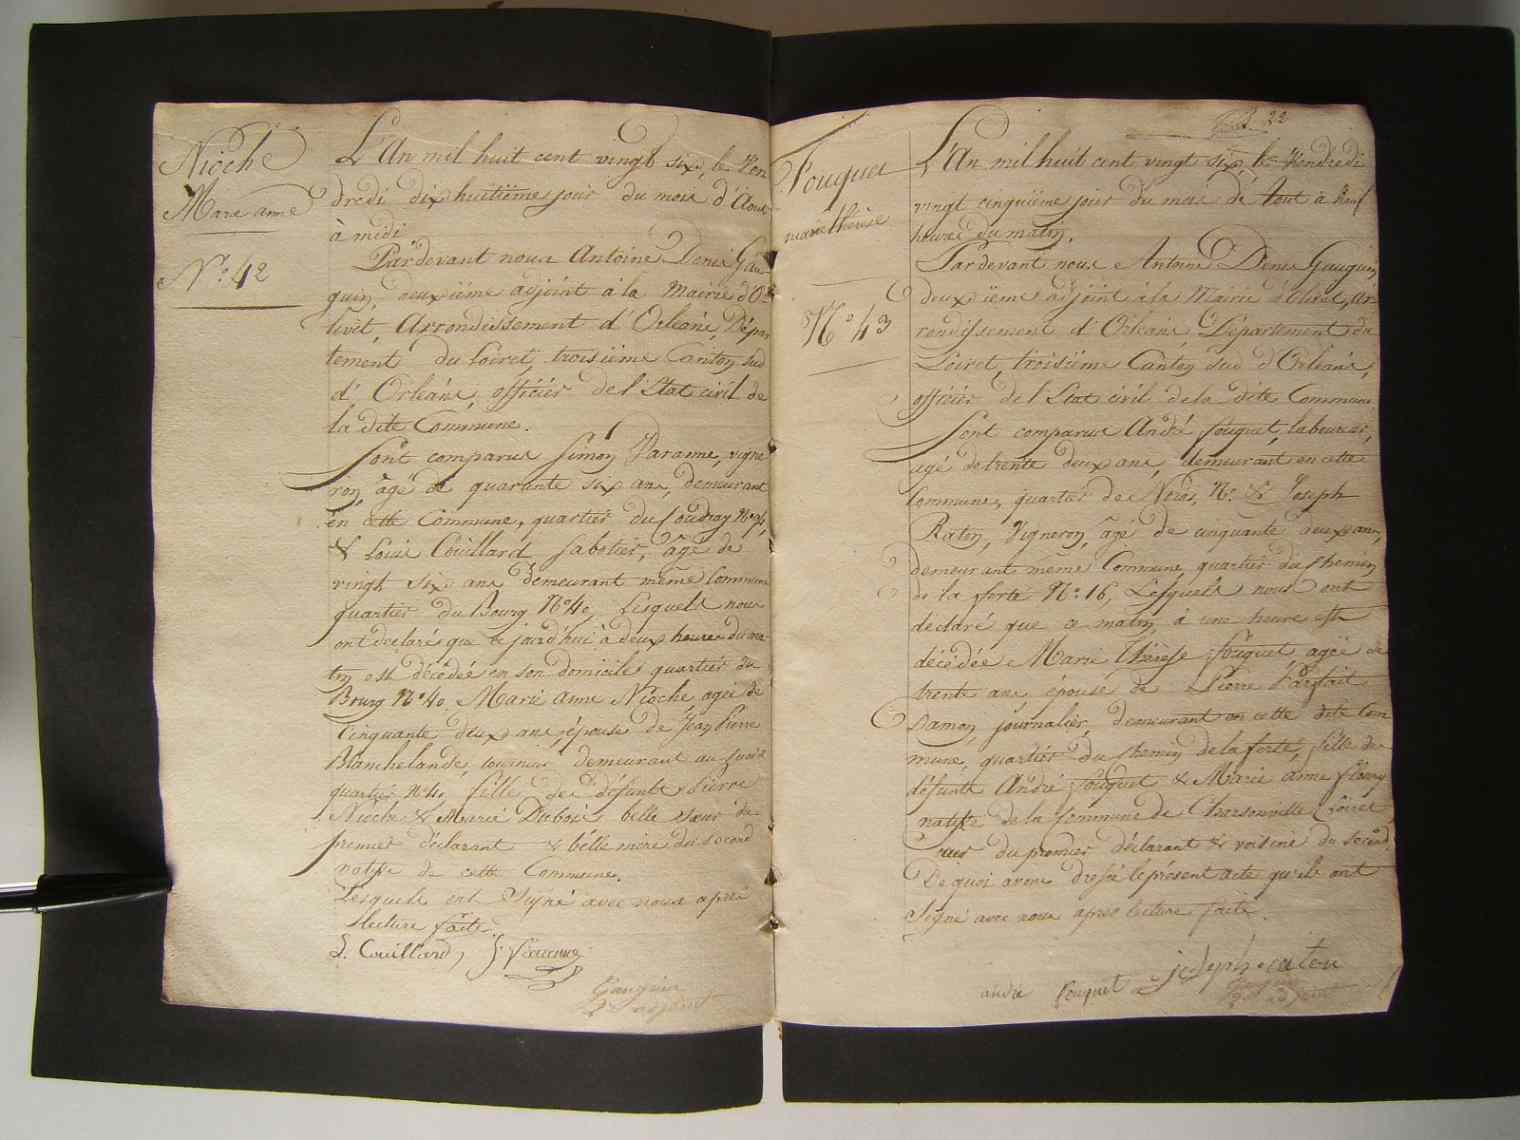 Nioche
Marie anne
N.º 42
L'An mil huit cent vingt six, le Ven
dredi dix huitième jour du mois d'Aout
à midi
Pardevant nous Antoine Denis Gau
guin, deuxième adjoint à la Mairie d'O
livet, Arrondissement d'Orléans, Dépar
tement du Loiret, troisième Canton sud
d'Orléans, officier de l'Etat civil de
la dite Commune.
Sont comparus Simon Paranne, vigne
ron, âgé de quarante six ans, demeurant
en cette Commune, quartier du Coudray Nº 4,
& Louis Couillard sabotier, âgé de
vingt six ans demeurant même Commune
quartier du Bourg Nº 40 Lesquels nous
ont déclaré que ce jourd'hui à deux heures du ma
tin est décédée en son domicile quartier du
Bourg Nº 40 Marie anne Nioche, agée de
Cinquante deux ans, épouse de Jean Pierre
Blanchelande, demeurant au susdit
quartier Nº 40 fille de défunts Pierre
Nioche & Marie Dubois belle sœur du
premier déclarant & belle mere du second
native de cette Commune.
Lesquels ont Signé avec nous après
lecture faite.
L. Couillard, S. Paranne
Gauguin
2e adjoint
22
Fouquet
marie thérèse
Nº 43
L'An mil huit cent vingt six, le Vendredi
vingt cinquième jour du mois d'Aout à Neuf
heures du matin.
Pardevant nous Antoine Denis Gauguin
deuxième adjoint à la Mairie d'Olivet, Ar
rondissement d'Orléans Département du
Loiret, troisième Canton sud d'Orléans,
officier de l'Etat civil de la dite Commune
Sont comparus André fouquet, laboureur,
agé de trente deux ans, demeurant en cette
Commune, quartier de Nº & Joseph
Raton, Vigneron, agé de cinquante deux ans,
demeurant même Commune quartier du Chemin
de la ferté Nº 16, Lesquels nous ont
déclaré que ce matin à une heure est
décédée Marie Thérèse fouquet agée de
trente ans épouse de Pierre Parfait
Damon journalier, demeurant en cette dite Com
mune, quartier du Chemin de la ferté, fille de
défunts André fouquet & Marie anne fleury
native de la Commune de Charsonville Loiret
du premier déclarant & voisine du second
De quoi avons dressé le présent acte qu'ils ont
Signé avec nous après lecture faite.
andre fouquet joseph raton
Gauguin
2e adjoint